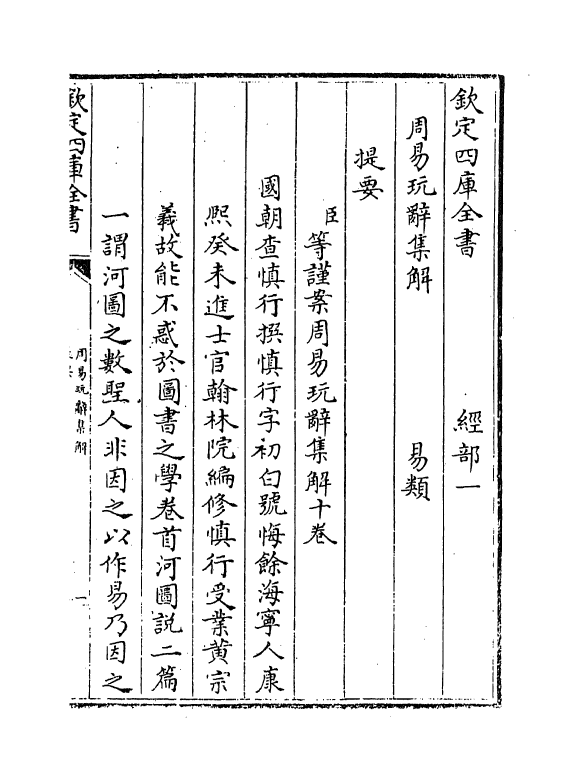 欽定四庫全書　經部一
周易玩辭集解　易類
提要
臣等謹案周易玩辭集解十卷
國朝查慎行撰慎行字初白號悔餘海寧人康
熙癸未進士官翰林院編修慎行受業黄宗
羲故能不惑於圖書之學卷首河圖說二篇
一謂河圖之數聖人非因之以作易乃因之
欽定四庫全書
周易玩辭集解
一